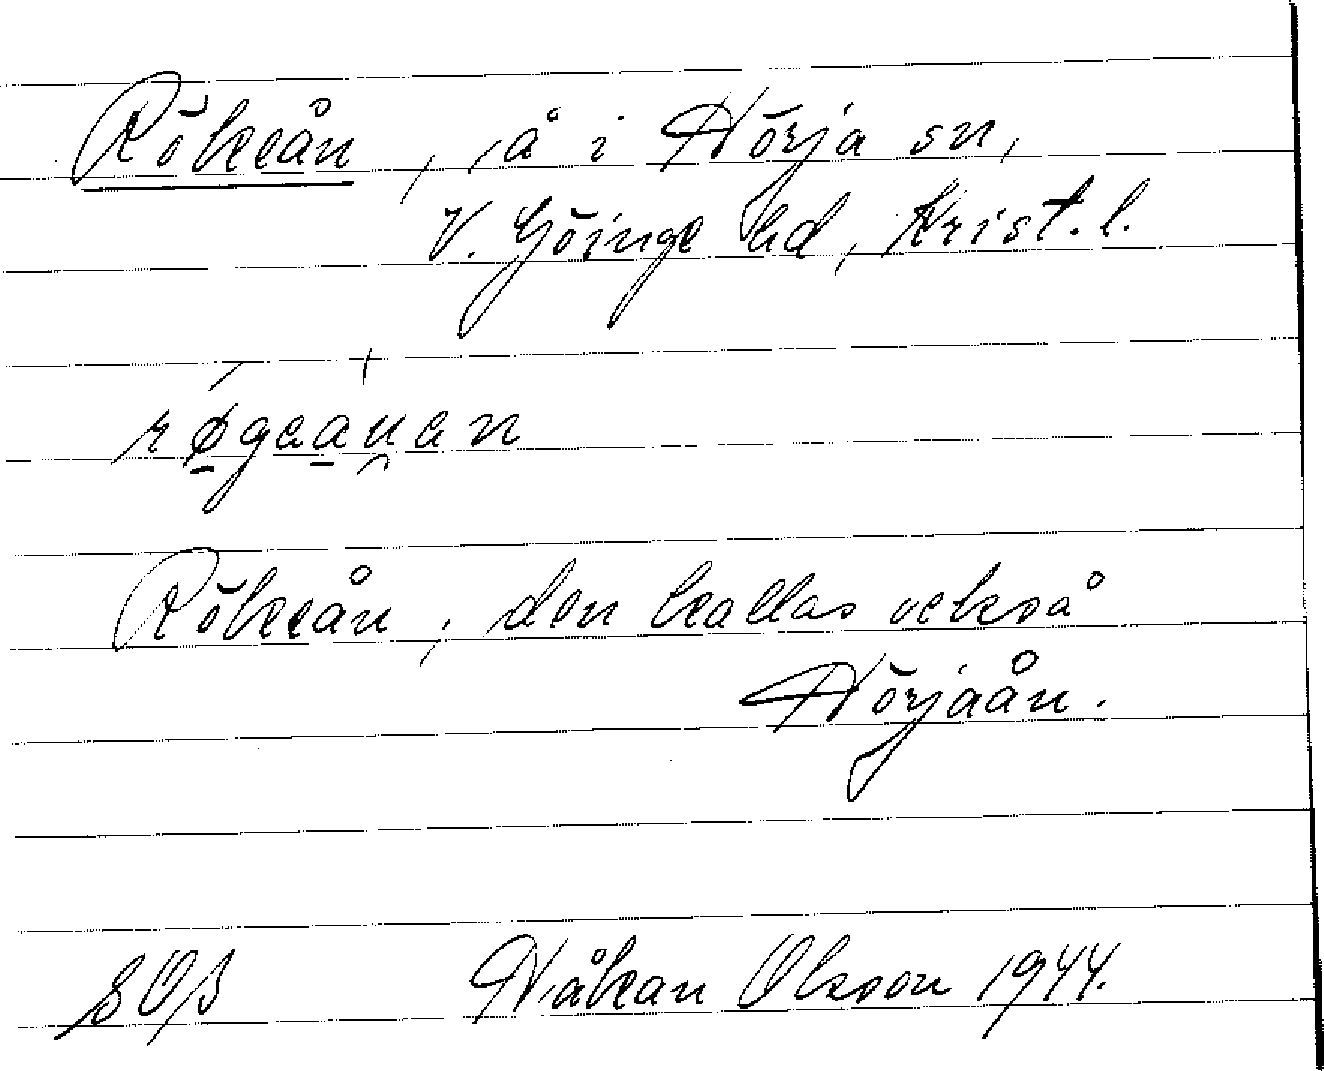 Rökeån, å i Nörja sn,
V. Göinge hd, Krist. l.
Rökeån, den kallas också
Nörjaån.
Håkan Olsson 1944.